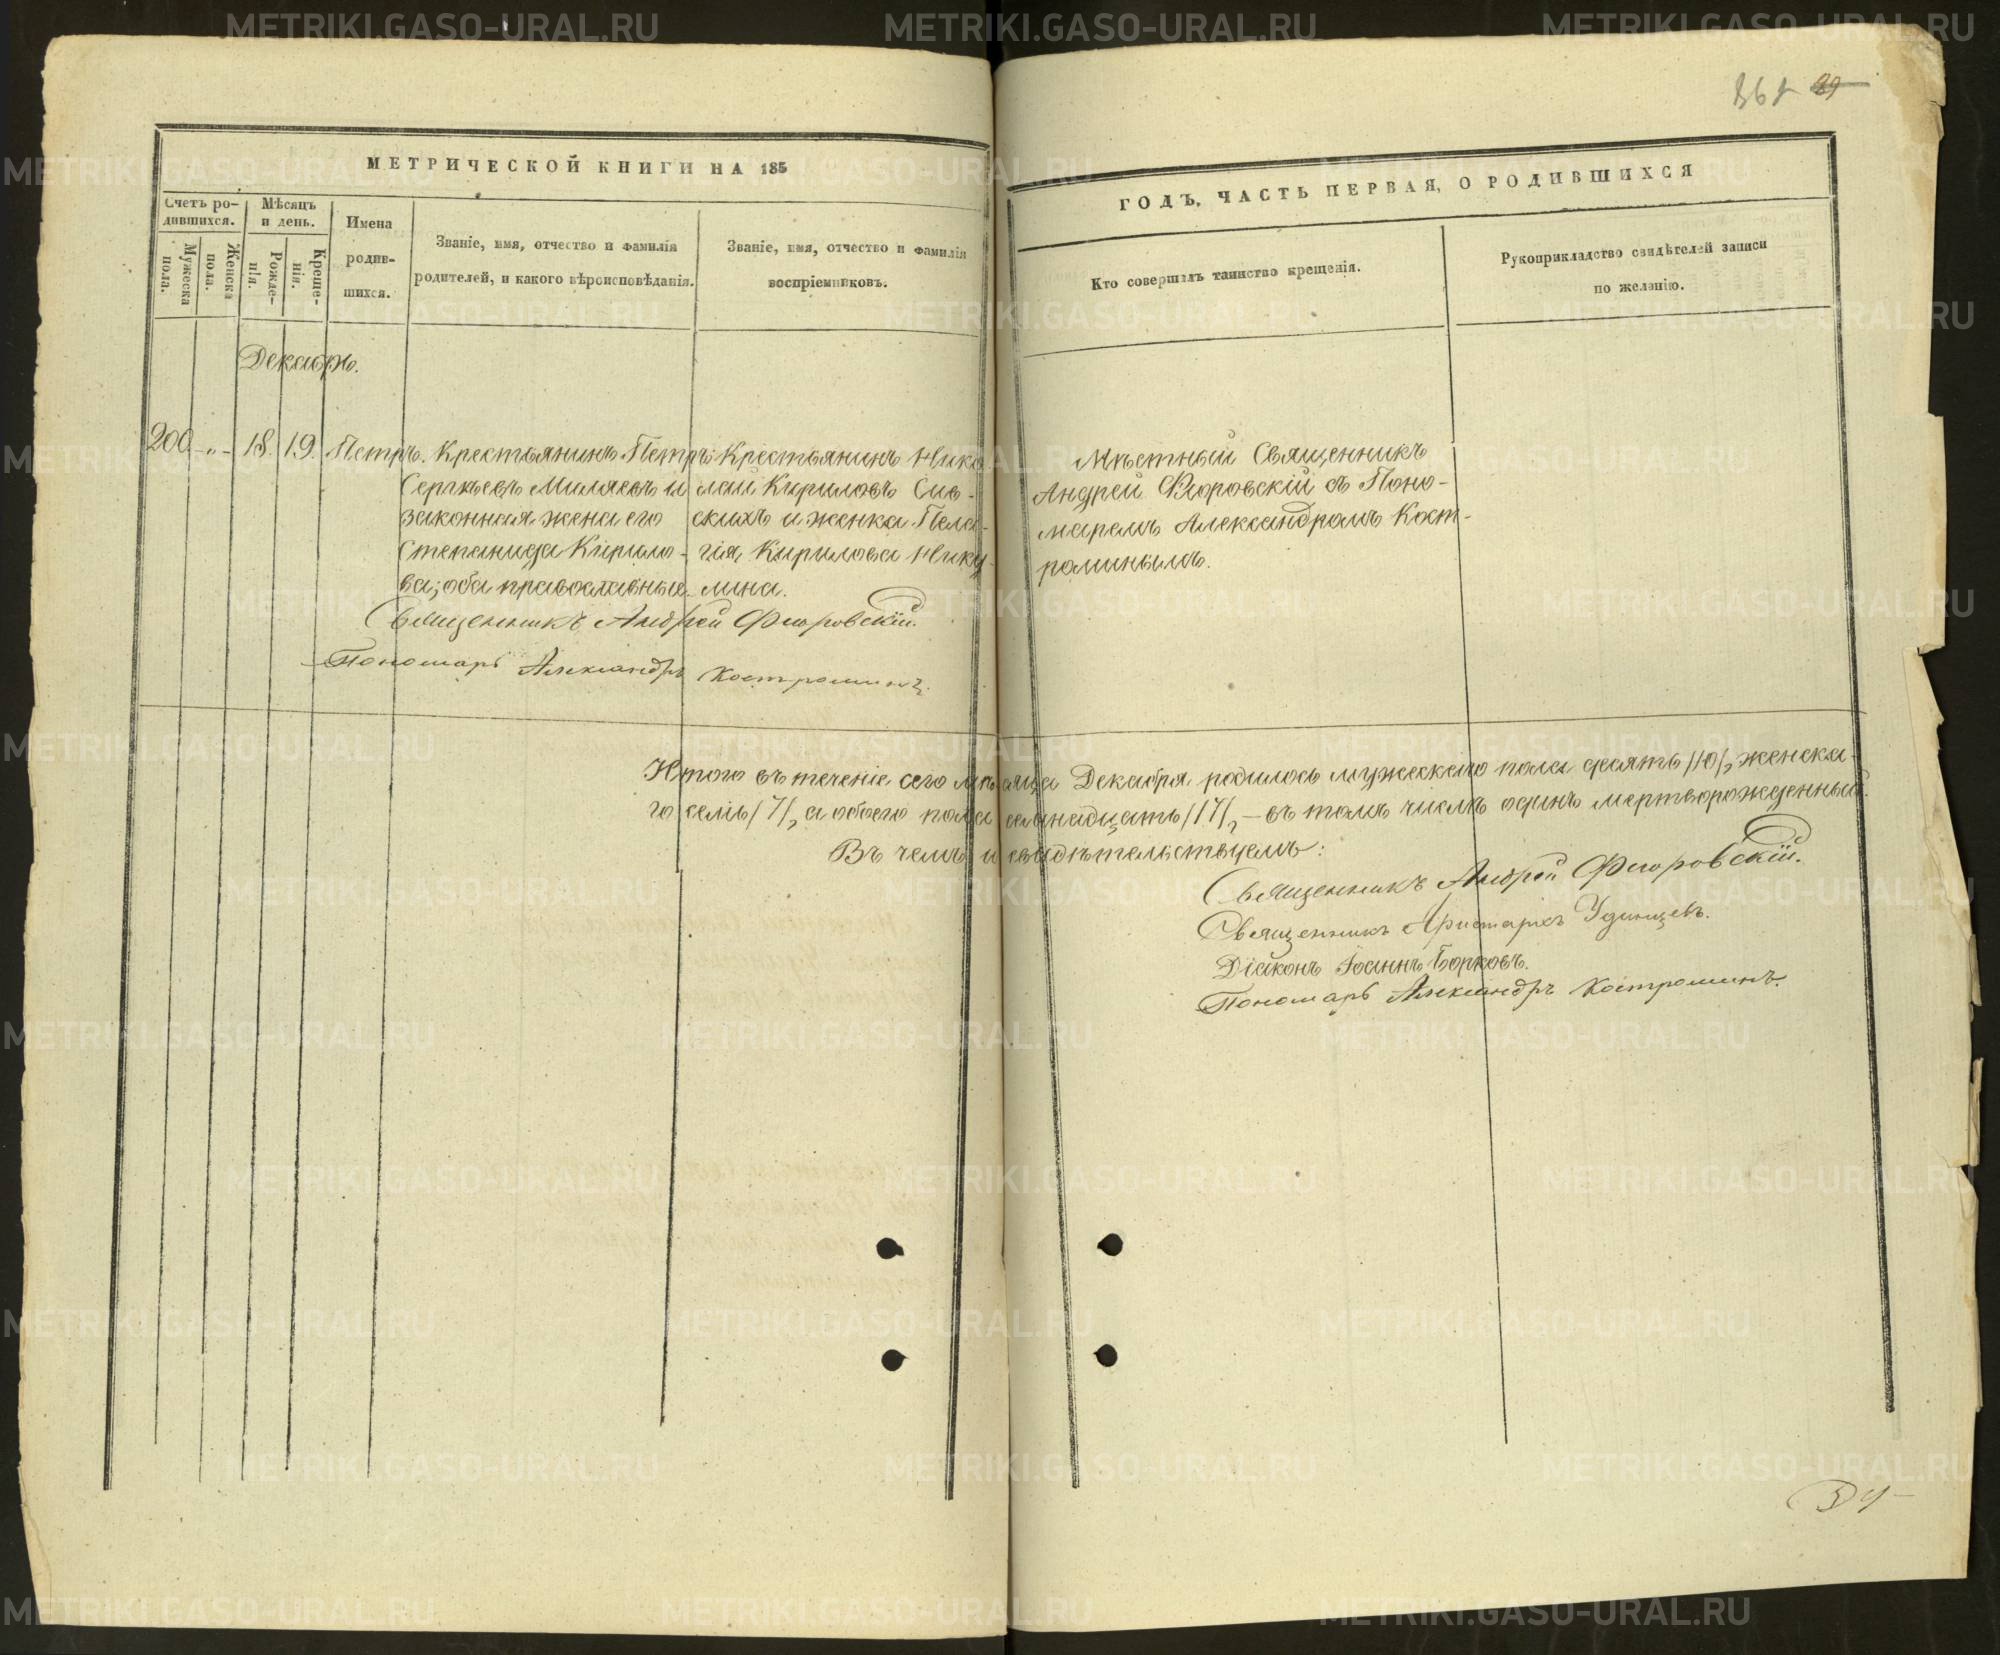 367 89
МЕТРИЧЕСКОЙ КНИГИ НА 185
ГОДЪ, ЧАСТЬ ПЕРВАЯ, О РОДИВШИХСЯ
Счетъ ро-
дившихся.
Мужеска
пола.
Женска
пола.
Мѣсяцъ
и день.
Рожде-
нія.
Креще-
нія.
Имена
родив-
шихся.
Званіе, имя, отчество и фамилія
родителей, и какого вѣроисповѣданія.
Званіе, имя, отчество и фамилія
воспріемниковъ.
Кто совершалъ таинство крещенія.
Рукоприкладство свидѣтелей записи
по желанію.
Декабрь.
200 - „ - 18. 19. Петръ.
Крестьянинъ Петръ
Сергѣевъ Миляевъ и
законная жена его
Степанида Кирило-
ва; оба православные.
Крестьянинъ Нико
лай Кириловъ Сив-
скихъ и женка Пела-
гія Кирилова Нику-
лина.
Мѣстный Священникъ
Андрей Флоровскій съ Поно-
маремъ Александромъ Кост-
роминымъ.
Священникъ Андрей Флоровскій.
Пономарь Александръ Костроминъ.
Итого въ теченіе сего мѣсяца Декабря родилось мужескаго пола десять /10/, женска-
го семь /7/, а обоего пола семнадцать /17/, — въ томъ числѣ одинъ мертворожденный.
Въ чемъ и свидѣтельствуемъ:
Священникъ Андрей Флоровскій.
Священникъ Аристархъ Удинцевъ.
Діаконъ Іоаннъ Борковъ.
Пономарь Александръ Костроминъ.